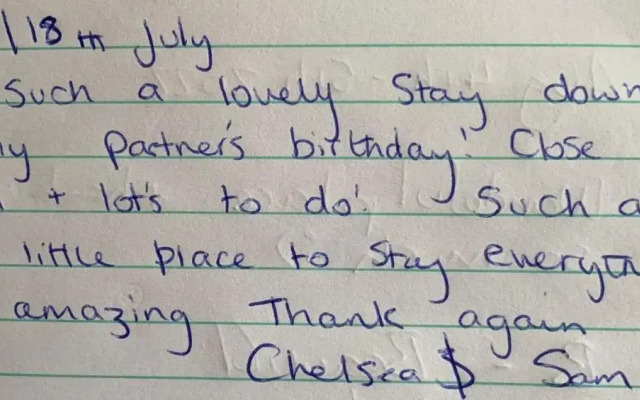 18th July
Such a lovely Stay down
partner's birthday! Close
+ lot's to do! Such a
little place to stay everyth
amazing Thank again
Chelsea & Sam